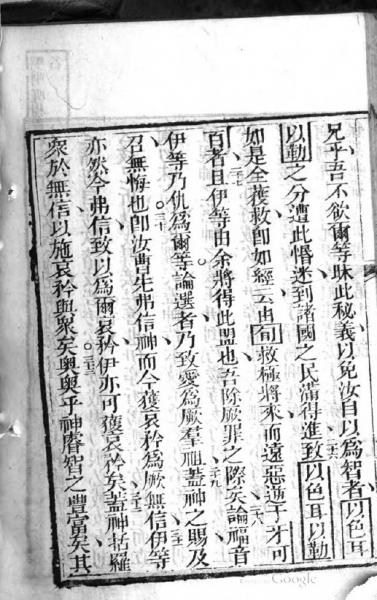 兄乎吾不欲爾等昧此秘義以免汝自以為智者以色耳
以勒之分遭此惛迷到諸國之民滿得進致以色耳以勒
如是全獲救卽如經云由旬救極將來而遠惡逆于牙可
百者且伊等由余將得此盟也吾除厥罪之際矣論福音
伊等乃仇為爾等論選者乃致愛為厥羣祖蓋神之賜及
召無悔也卽汝曹先弗信神而今獲哀矜為厥無信伊等
亦然今弗信致以為爾哀矜伊亦可獲哀矜矣蓋神括羅
衆於無信以施哀矜與衆矣奧奧乎神睿智之豐富矣其
Google